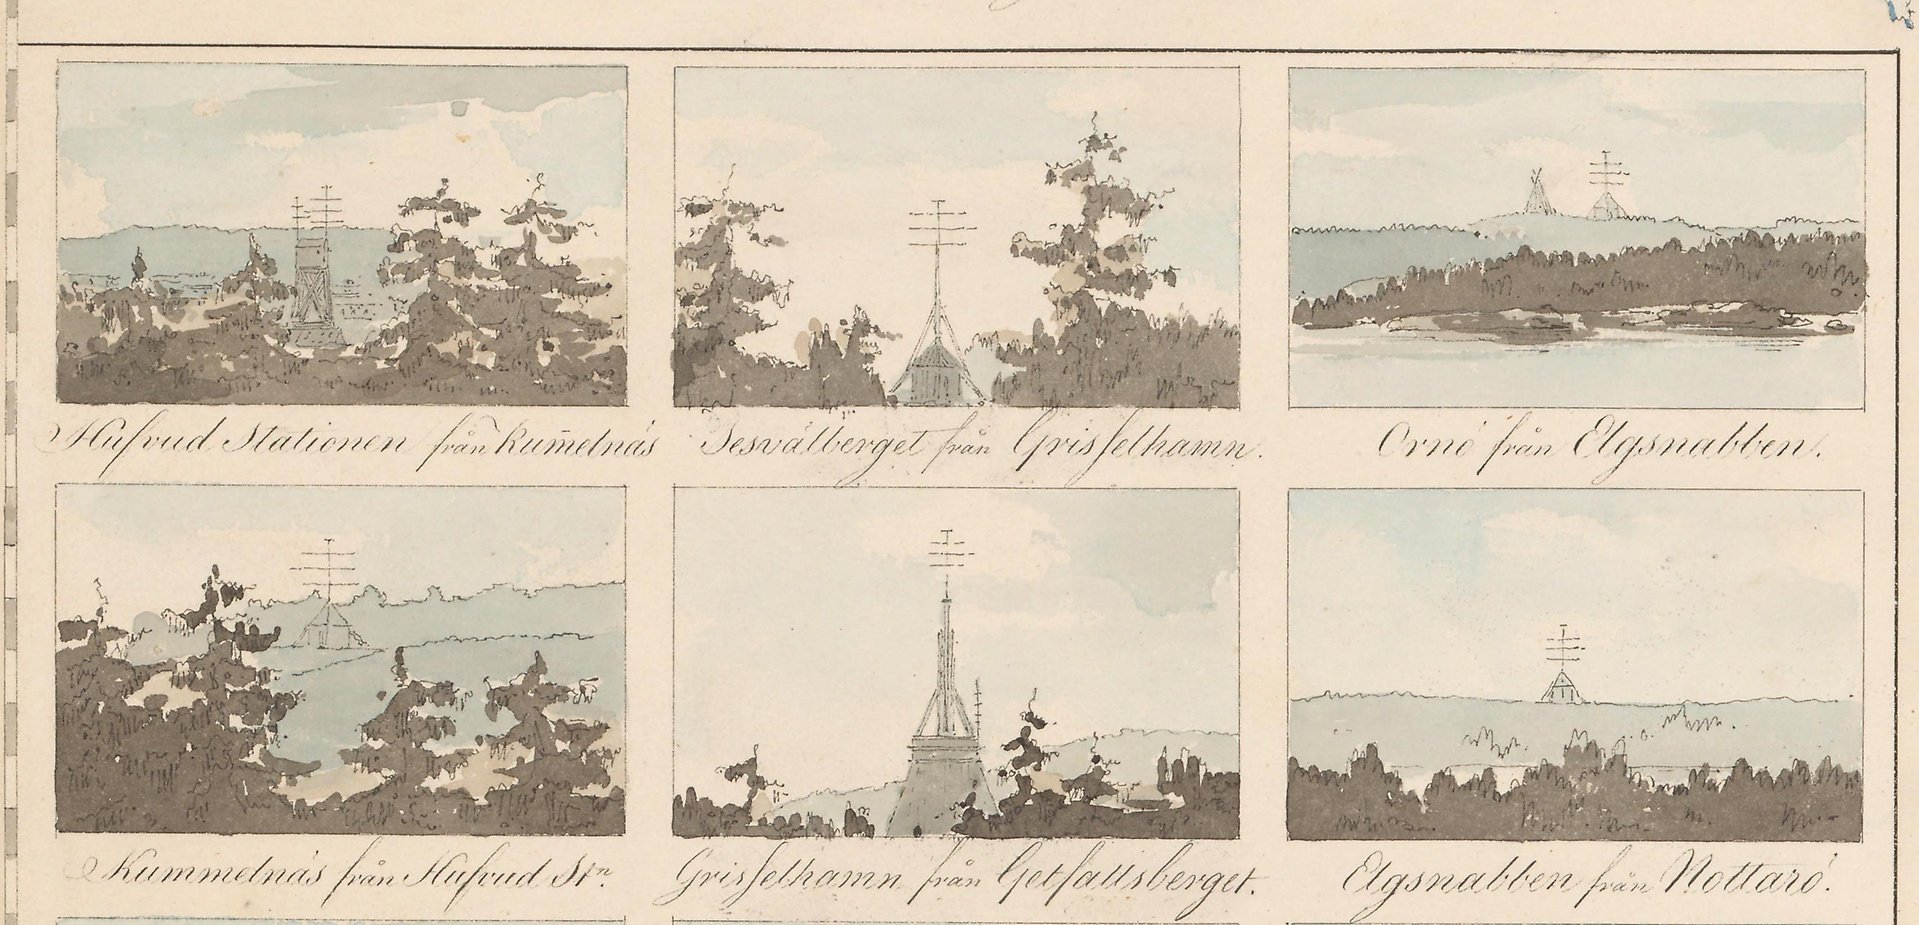 Hufvud Stationen från Kum̄elnäs
Sesvålberget från Grisselhamn.
Ornö från Elgsnabben.
Kummelnäs från Hufvud Stn.
Grisselhamn från Getfaltsberget.
Elgsnabben från Nottarö.